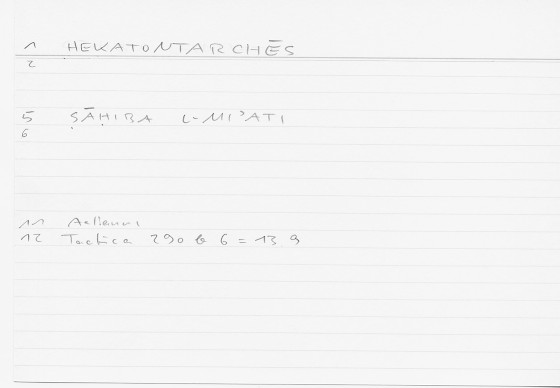 1 HEKATONTARCHĒS
2
5 ṢĀḤIBA L-MIʾATI
6
11 Aelianus
12 Tactica 290 6 = 13 9